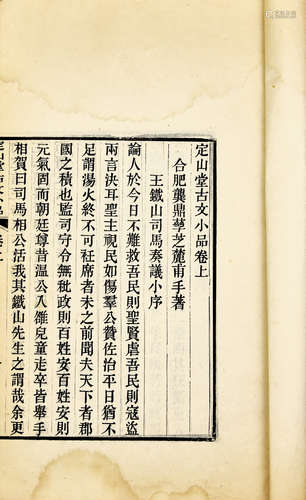 定山堂古文小品卷上
合肥龔鼎孳芝麓甫手著
王鐵山司馬奏議小序
論人於今日不難救吾民則聖賢虐吾民則寇盜
兩言決耳聖主視民如傷羣公贊佐治平日猶不
足謂湯火終不可衽席者未之前聞夫天下者郡
國之積也監司守令無秕政則百姓安百姓安則
元氣固而朝廷尊昔溫公入雒兒童走卒皆舉手
相賀曰司馬相公活我其鐵山先生之謂哉余更